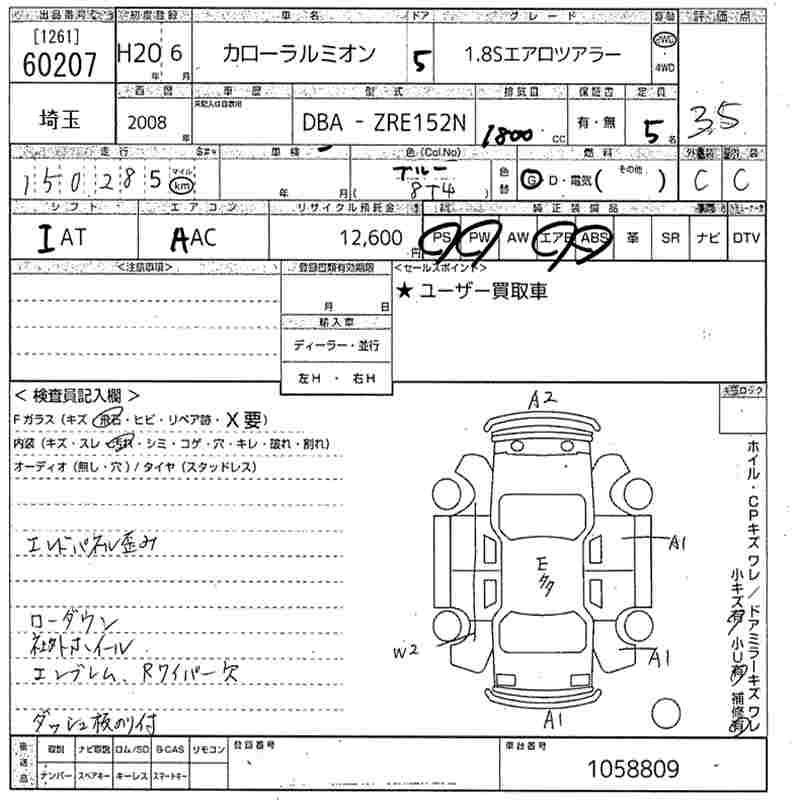 出品番号 初度登録 車名 ドア グレード 駆動 評価点
[1261]
60207 H20年 6月 カローラルミオン 5 1.8Sエアロツアラー 2WD 4WD 3.5
西暦 車歴 型式 排気量 保証書 定員
埼玉 2008年 DBA - ZRE152N 1800cc 有・無 5名
走行 車検 色(Col.No) 燃料 外装 内装
150285 マイル km 年 月 ブルー (8T4) 色替 G D・電気( その他 ) C C
シフト エアコン リサイクル預託金 純正装備品
I AT A AC 12,600円 PS PW AW エアB ABS 革 SR ナビ DTV
<注意事項> 登録書類有効期限 <セールスポイント>
月 日 ★ ユーザー買取車
輸入車
ディーラー・並行
左H ・ 右H
< 検査員記入欄 >
Fガラス(キズ・飛石・ヒビ・リペア跡・X要)
内装(キズ・スレ・汚れ・シミ・コゲ・穴・キレ・破れ・割れ)
オーディオ(無し・穴)/タイヤ(スタッドレス)
エンドパネル歪み
ローダウン
社外ホイール
エンブレム、Rワイパー欠
ダッシュ板のり付
A2
A1
E
タタ
W2
A1
A1
ホイル・CPキズワレ/ドアミラーキズワレ
小キズ有 小U有 補修有
後送品 取説 ナビ取説 ロム/SD B-CAS リモコン 登録番号 車台番号
ナンバー スペアキー キーレス スマートキー 1058809